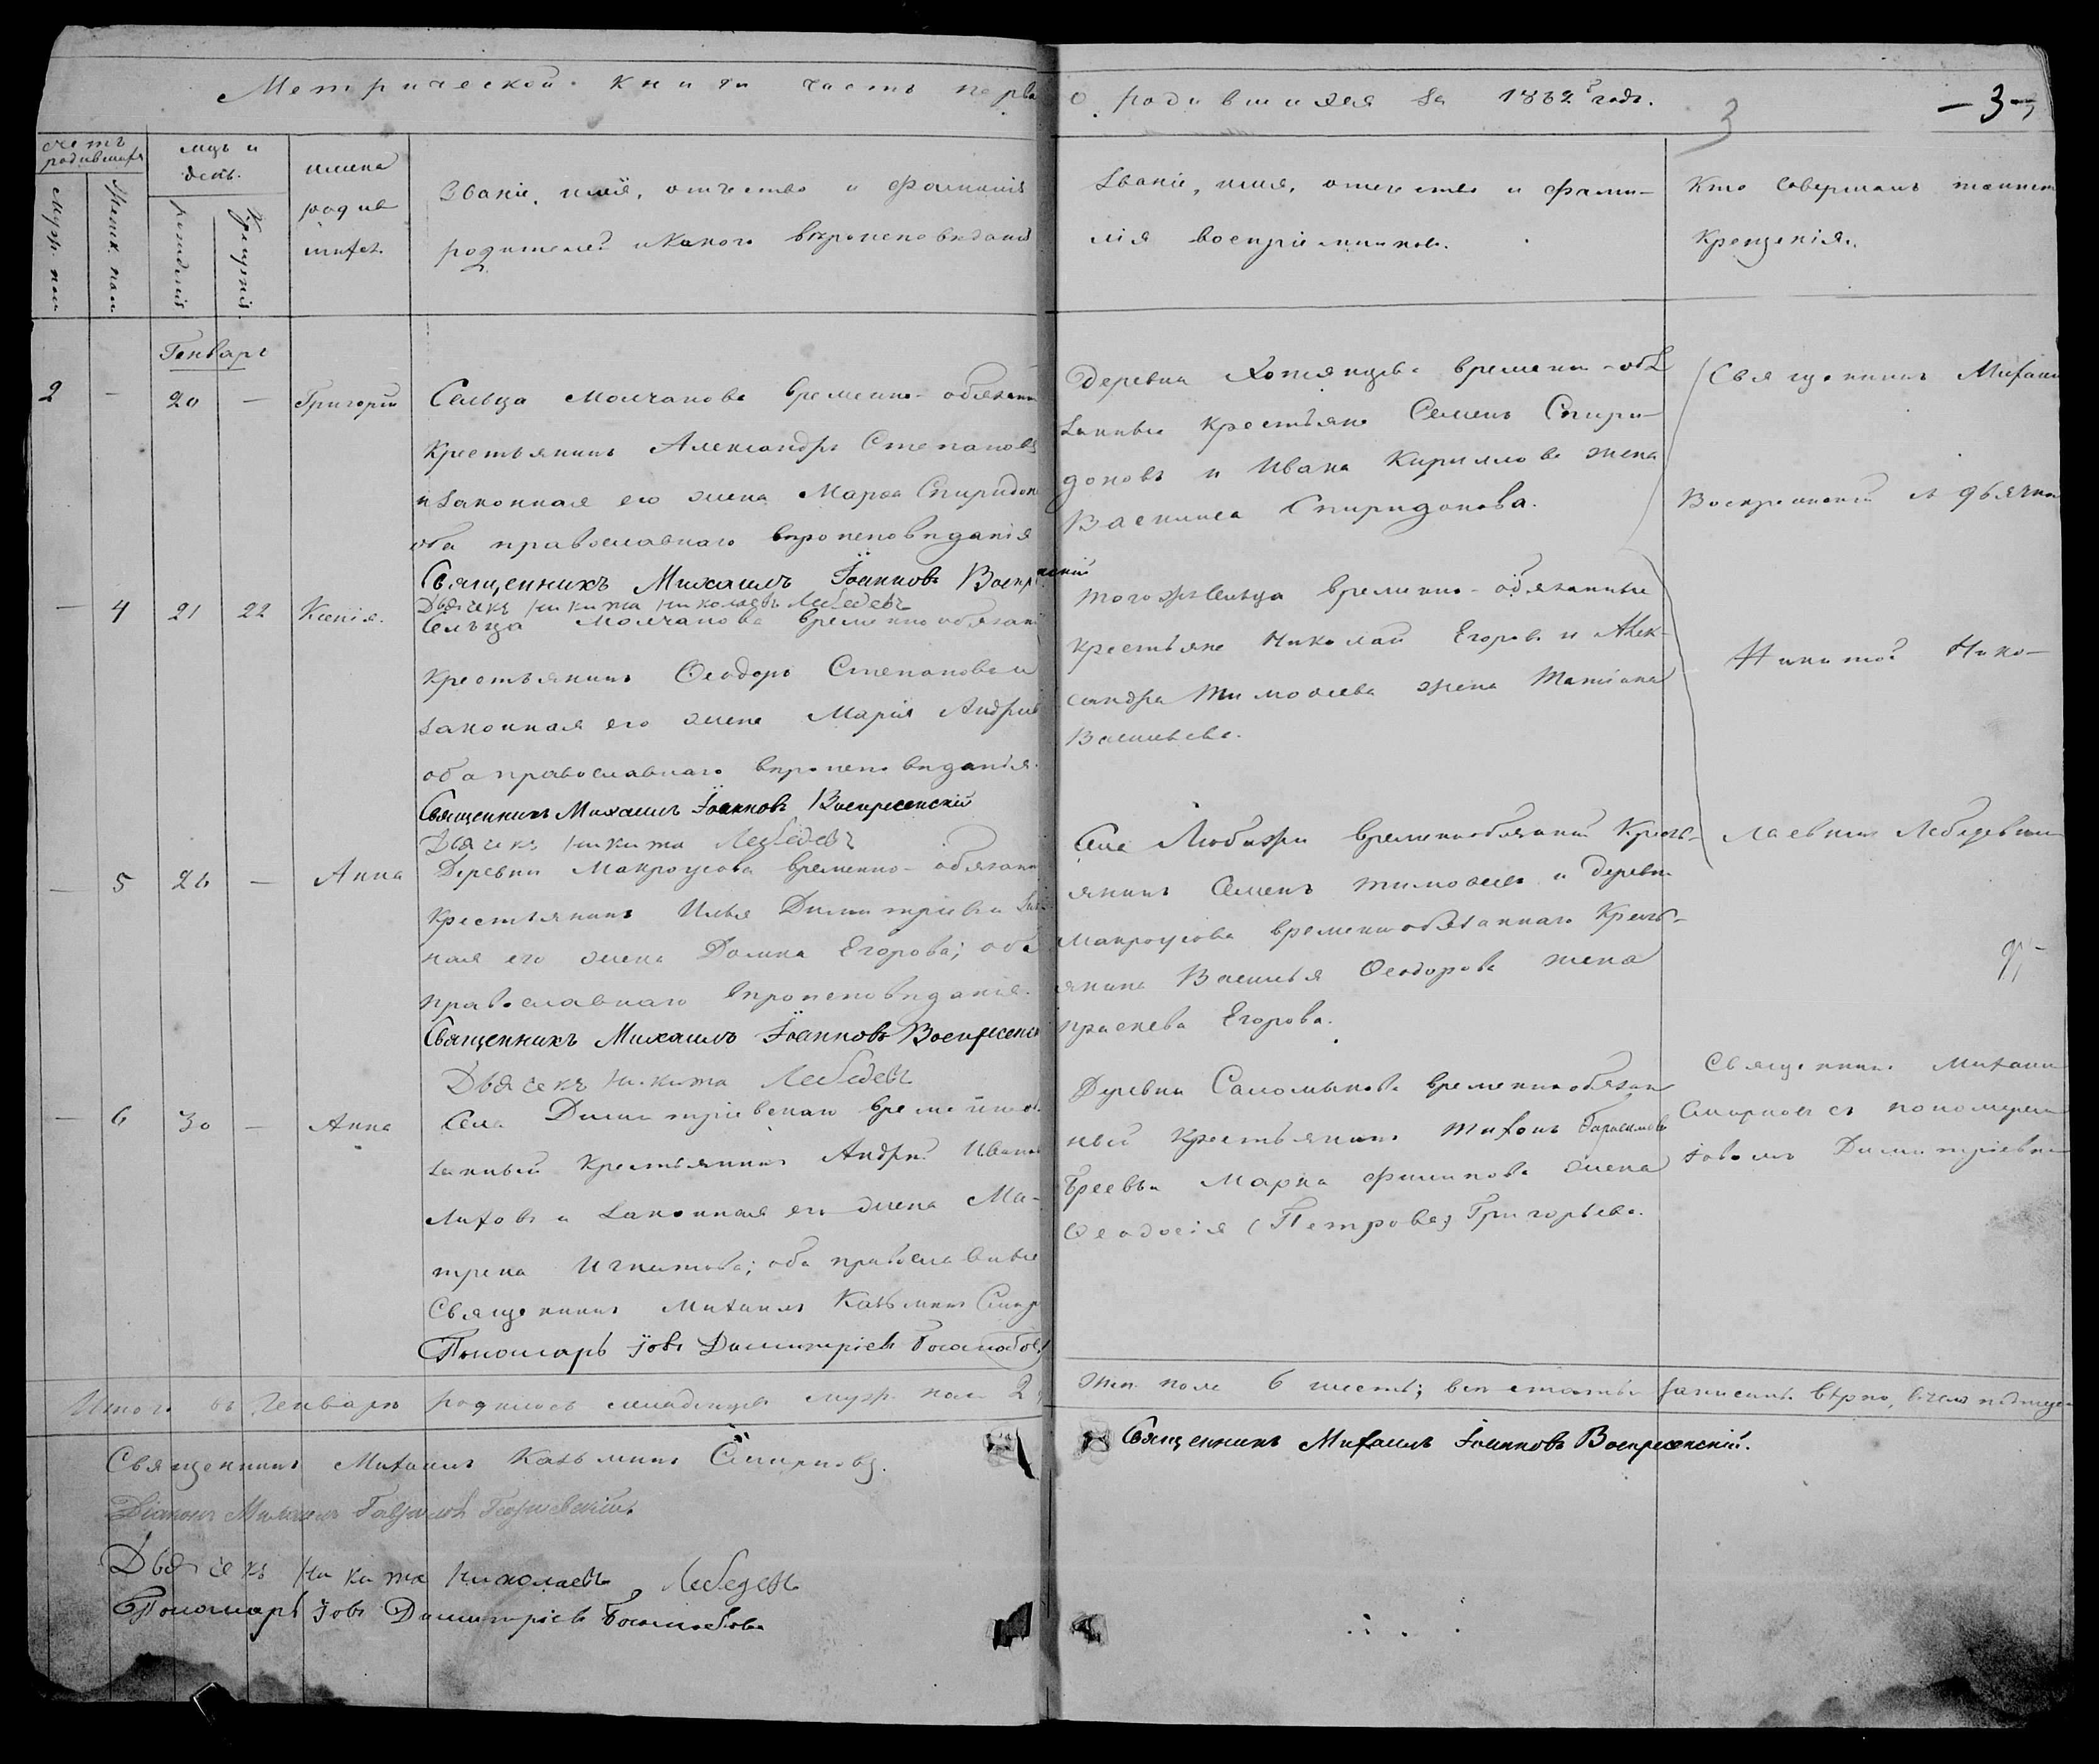 Метрической книги часть перва
о родившихся за 1862 годъ.
3
— 3 —
счетъ родившихся
мцъ и день.
имена родившихся
Званіе, имя, отчество и фамилія
родителей и какого вѣроисповѣданія
Званіе, имя, отчество и фами-
лія воспріемниковъ.
Кто совершалъ таинст
крещенія.
Муж. пол
Женск. пол
рожденія
Крещенія
Генварь
2 — 20 — Григорій
Сельца Молчанова временно-обязан
крестьянинъ Александръ Степановъ
и законная его жена Марѳа Спиридон
оба православнаго вѣроисповѣданія
Священникъ Михаилъ Іоанновъ Воскресенскій
Дьячекъ Никита Николаевъ Лебедевъ
деревни временно-обя
занные крестьяне Семенъ Спири-
доновъ и Ивана Кириллова жена
Васи­лиса Спиридонова.
Священникъ Михаил
Воскресенскій съ дьячком
— 4 21 22 Ксенія.
Сельца Молчанова временнообязан
крестьянинъ Ѳеодоръ Степановъ и
законная его жена Марія Андреев
оба православнаго вѣроисповѣданія.
Священникъ Михаилъ Іоанновъ Воскресенскій
Дьячекъ Никита Лебедевъ
того жъ сельца временно-обязанные
крестьяне Николай Егоровъ и Алек-
сандра Тимоѳеева жена Татіана
Васильева.
Никитой Нико-
— 5 26 — Анна
Деревни Мокроусова временно-обязан
крестьянинъ Илья Димитріевъ и зако
ная его жена Домна Егорова; оба
православнаго вѣроисповѣданія.
Священникъ Михаилъ Іоанновъ Воскресенск
Дьячекъ Никита Лебедевъ
Села Любажи временнообязаный Кресть-
янинъ Семенъ Тимоѳеевъ и деревни
Мокроусова временнообязаннаго Кресть-
янина Василья Ѳеодорова жена
Праскева Егорова.
лаевымъ Лебедевым
— 6 30 — Анна
Села Димитріевскаго временнооб
занный крестьянинъ Андрей Иванов
Лиховъ и законная его жена Ма-
трена Игнатова; оба православные
Священникъ Михаилъ Козьминъ Смир
Пономарь Іовъ Димитріевъ Богомобов
Деревни Саломыкова временнообязан
ный крестьянинъ Тихонъ Герасимов
Марка Филипова жена
Ѳеодосія (Петрова) Григорьева.
Священникъ Михаил
Смирновъ съ пономарем
Іовомъ Димитріевым
Итого въ Генварѣ родилось младенцевъ муж. пола 2,
жен. пола 6 шесть; всѣ статьи записаны вѣрно, въ чемъ подписуе
Священникъ Михаилъ Козьминъ Смирновъ.
Священникъ Михаилъ Іоанновъ Воскресенскій.
Діаконъ Михаилъ Гавриловъ
Дьячекъ Никита Николаевъ Лебедевъ
Пономарь Іовъ Димитріевъ